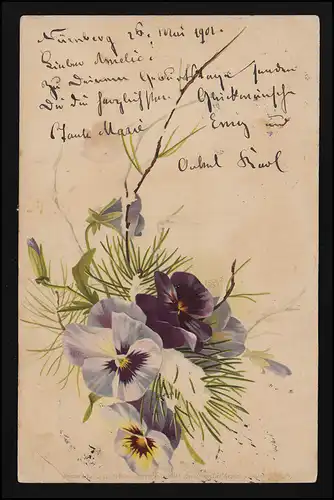 Nürnberg 26. Mai 1901.
Liebe Amelie!
Zu Deinem Geburtstage senden
Dir die herzlichsten Glückwünsche
Tante Marie Emy und
Onkel Karl